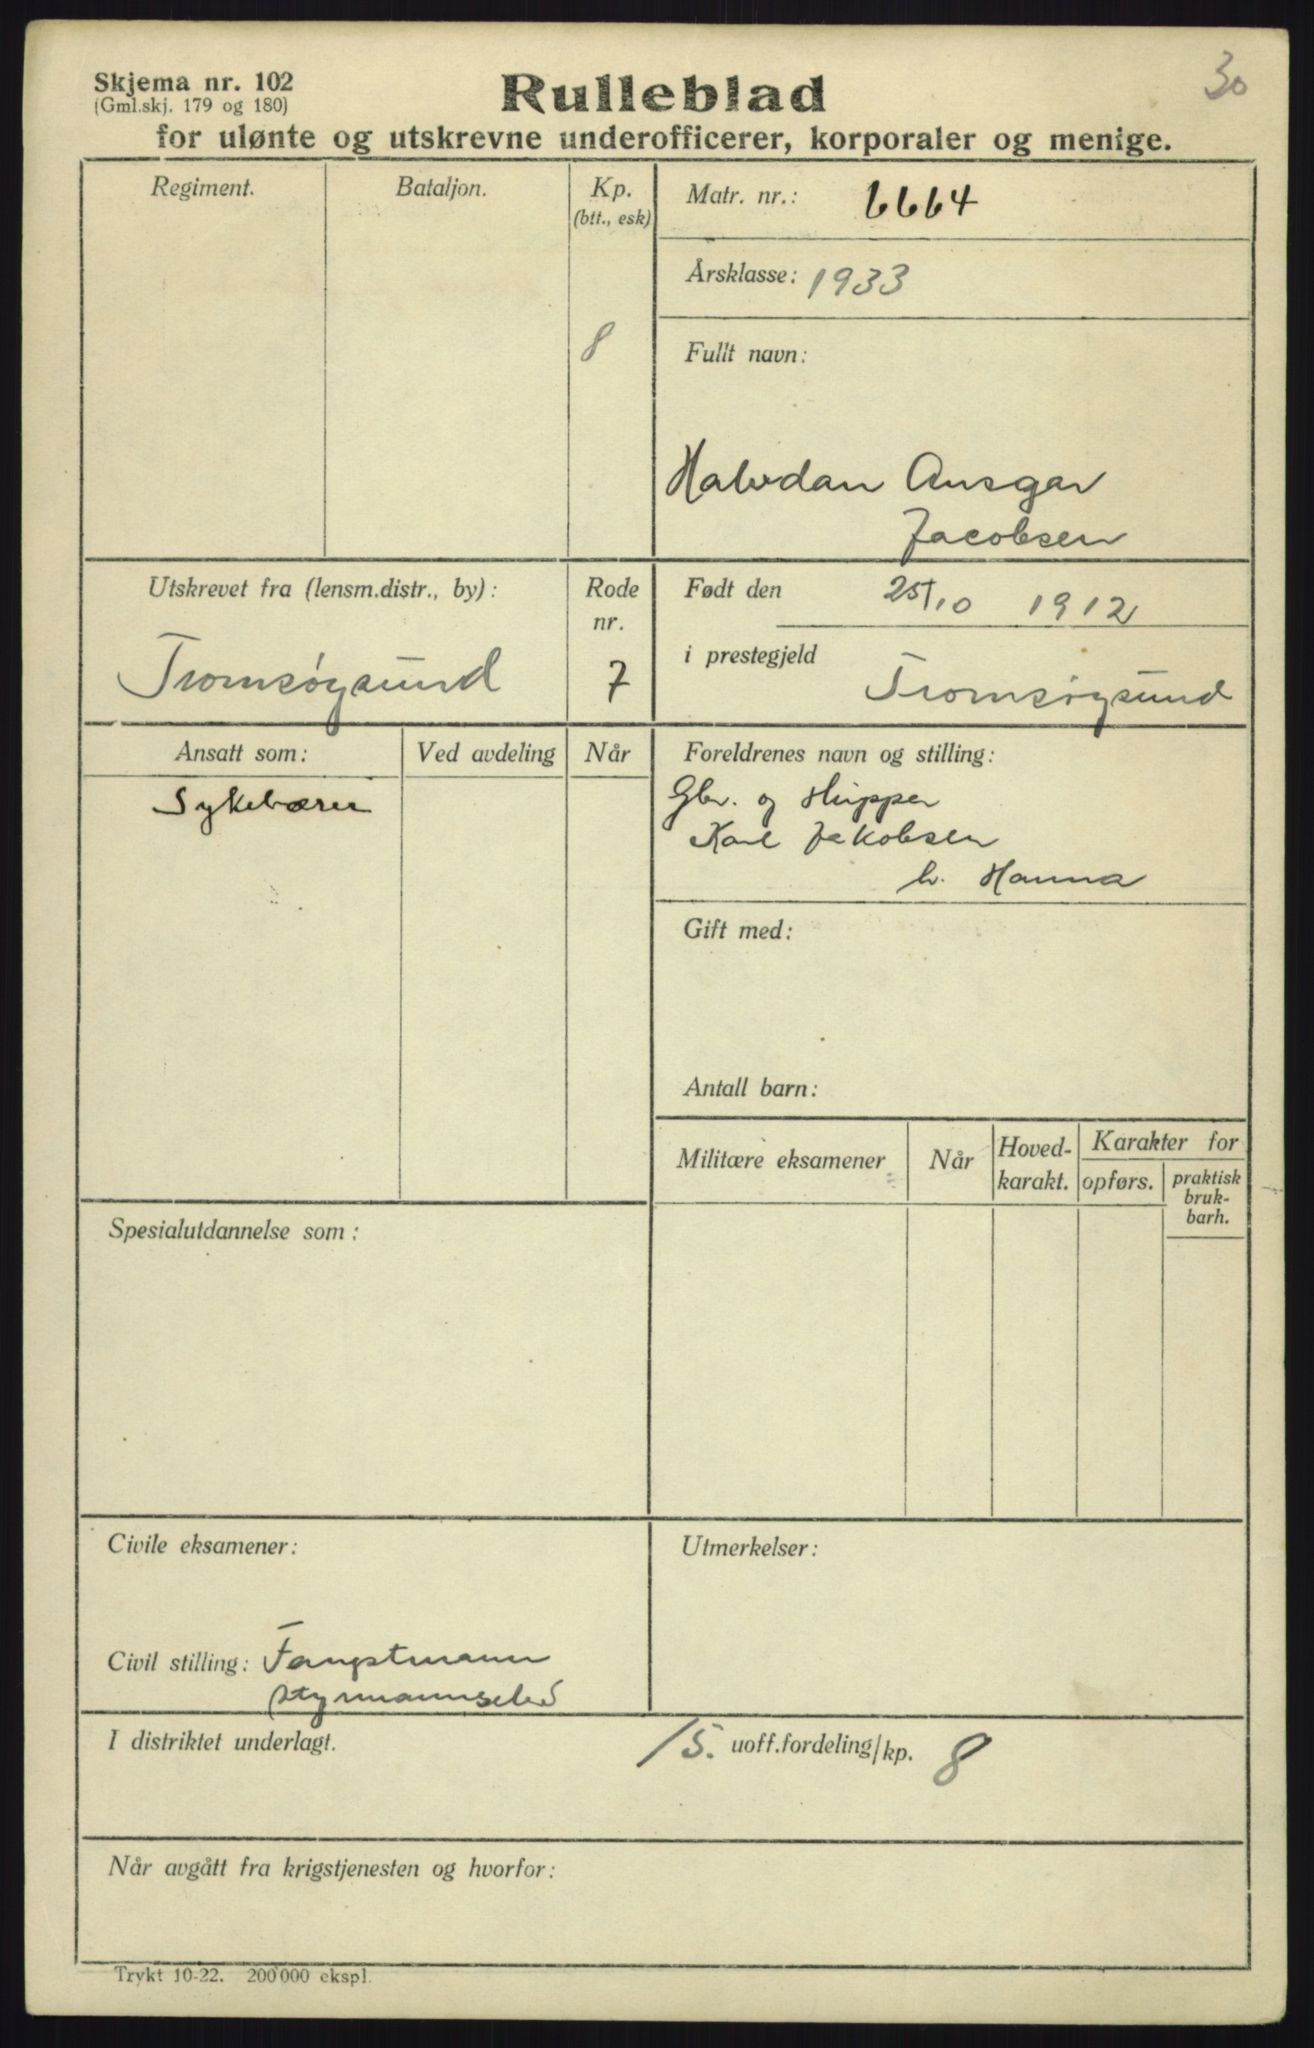 30
Skjema nr. 102
(Gml.skj. 179 og 180)
Rulleblad
for ulønte og utskrevne underofficerer, korporaler og menige.
Regiment.
Bataljon.
Kp.
(btt., esk)
8
Matr. nr.: 6664
Årsklasse: 1933
Fullt navn:
Halvdan Ansgar
Jacobsen
Utskrevet fra (lensm.distr., by):
Tromsøysund
Rode
nr.
7
Født den 25/10 1912
i prestegjeld Tromsøysund
Ansatt som:
Ved avdeling
Når
Sykebærer
Foreldrenes navn og stilling:
Gbr. og Skipper
Karl Jakobsen
h. Hanna
Gift med:
Antall barn:
Militære eksamener
Når
Hoved-
karakt.
Karakter for
opførs.
praktisk
bruk-
barh.
Spesialutdannelse som:
Civile eksamener:
Civil stilling: Fangstmann
Utmerkelser:
I distriktet underlagt.
15. uoff.fordeling/kp. 8
Når avgått fra krigstjenesten og hvorfor:
Trykt 10-22. 200 000 ekspl.